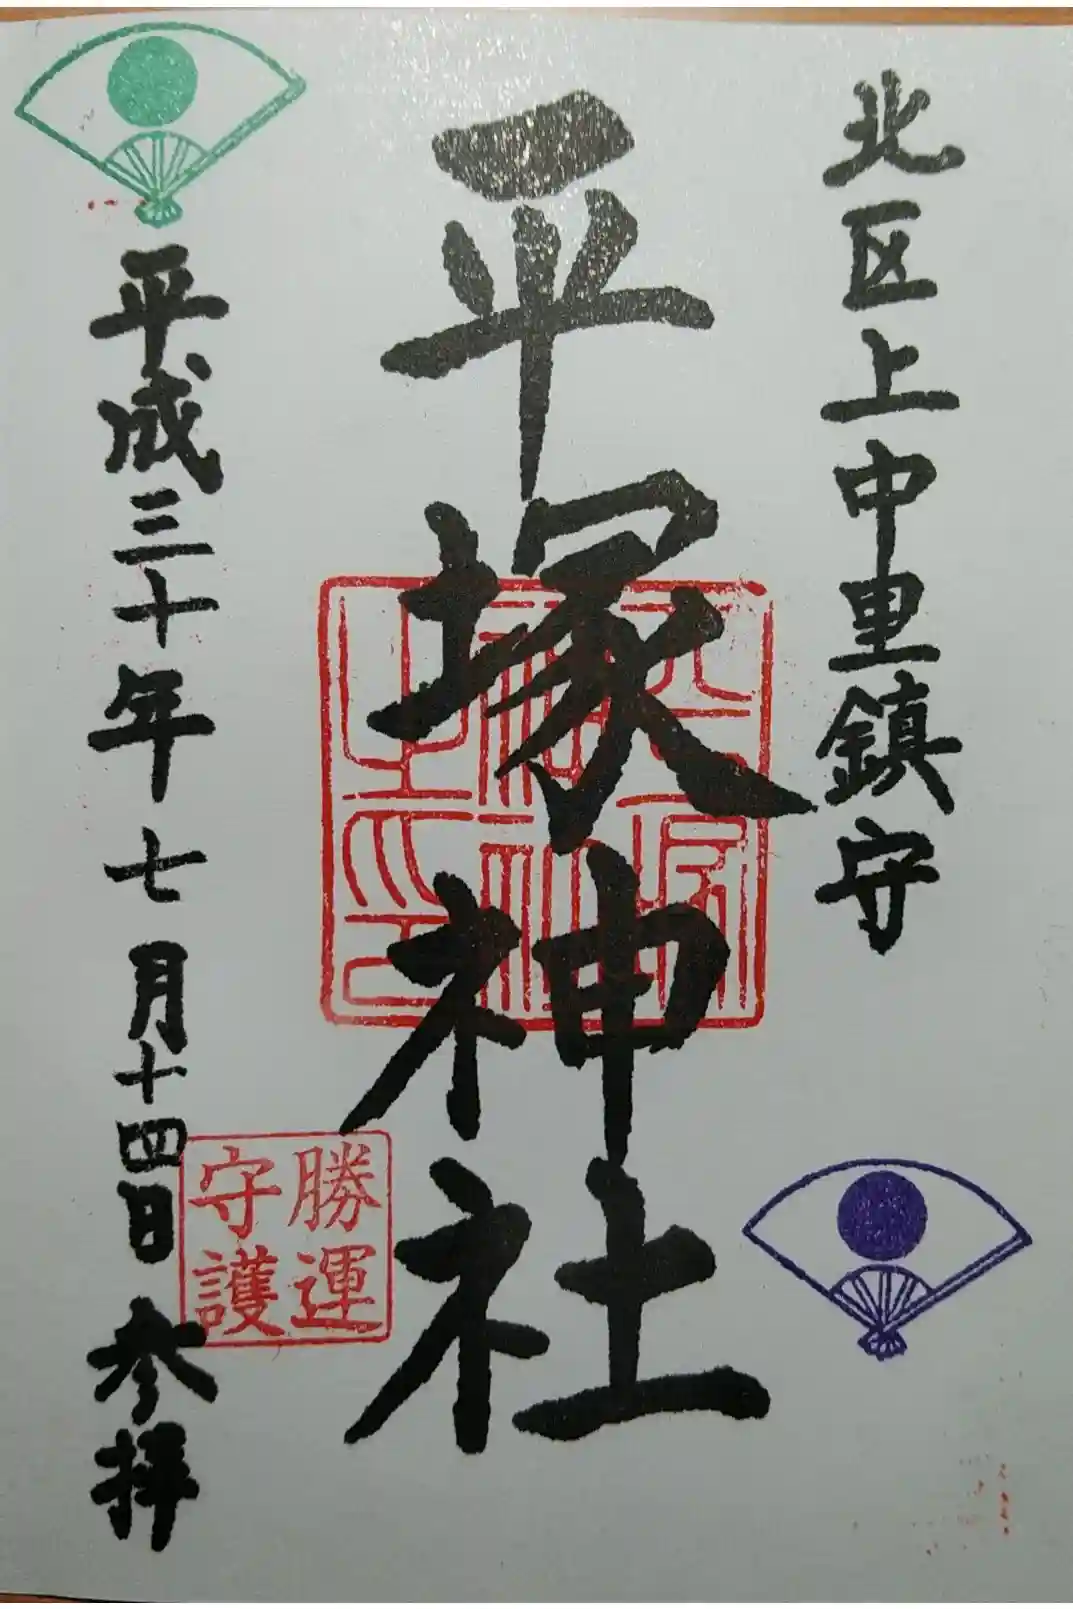 北区上中里鎮守
平塚神社
平塚神社之印
勝運
守護
平成三十年七月十四日参拝